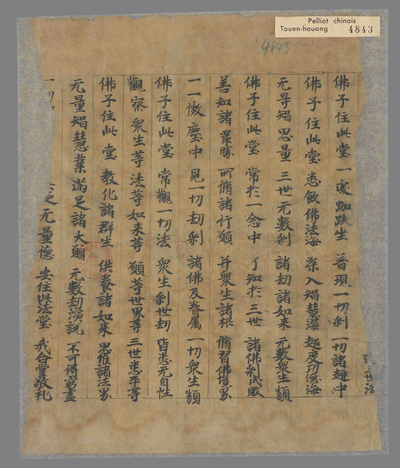 Pelliot chinois
Touen-houang 4843
4843
佛子住此堂 一處跏趺坐 普現一切刹 一切諸趣中
佛子住此堂 悉飲佛法海 深入智慧海 越度功德海
无㝵智思量 三世无數刹 諸劫諸如来 无數衆生類
佛子住此堂 常於一念中 了知於三世 諸佛刹成敗
善知諸 所脩諸行願 并衆生諸根 脩習佛境界
一一微塵中 見一切劫刹 諸佛及眷属 一切衆生類
佛子住此堂 常觀一切法 衆生刹世劫 皆悉无自性
觀察衆生等 法等如来等 願等世界等 三世悉平等
佛子住此堂 教化諸群生 供養諸如来 思惟諸法界
无量智慧業 滿足諸大願 无數劫演説 不可得窮盡
一切 之无量德 安住此法堂 我合掌敬礼